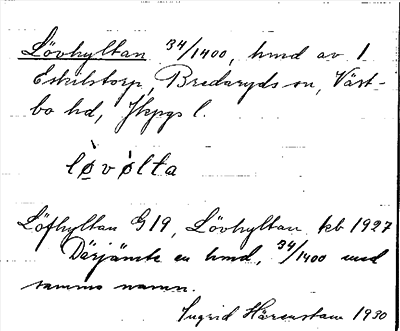 Lövhyltan 34/1400, hmd av 1
Eskilstorp, Bredaryds sn, Väst-
bo hd, Jkpgs l.
lø̀vòlta
Löfhyltan G19, Lövhyltan, kb 1927
Därjämte en hmd, 34/1400 med
samma namn.
Ingrid Härenstam 1930